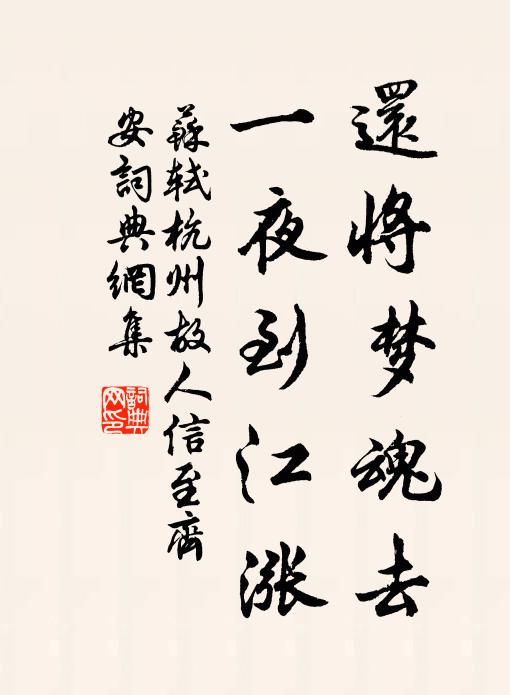 還將梦魂去
一夜到江漲
蘇軾杭州故人信至齊
安詞典網集
詞典
网印